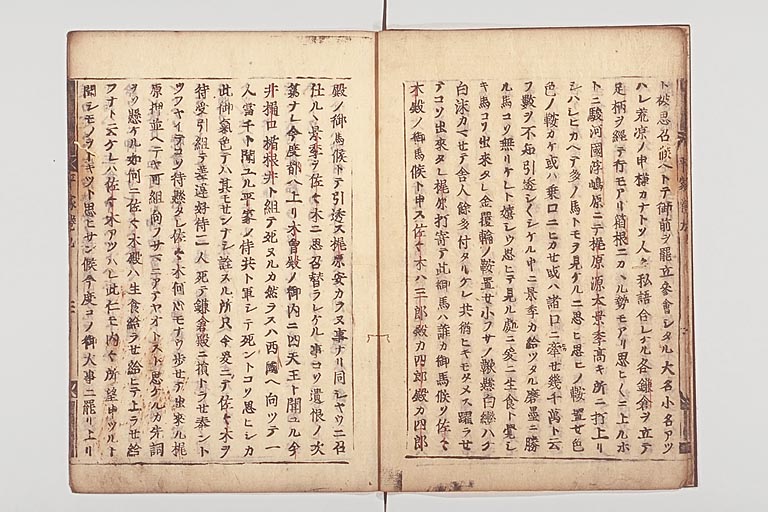 ト被思召候ヘトテ御前ヲ罷立参會シタル大名小名アツ
ハレ荒凉ノ申様カナトソ人々私語合レケル各鎌倉ヲ立テ
足柄ヲ經テ行モアリ箱根ニカヽル勢モアリ思ヒ〳〵ニ上ルホ
トニ駿河國浮嶋原ニテ梶原源太景季高キ所ニ打上リ
シハシヒカヘテ多ノ馬トモヲ見ケルニ思ヒ思ヒノ鞍置せ色
色ノ鞦カケ或ハ乗口ニヒカせ或ハ諸口ニ牽せ幾千萬ト云
フ數ヲ不知引透シ〳〵シケル中ニ景季カ給ツタル磨墨ニ勝
ル馬コソ無リケレト嬉シウ思ヒテ見ル處ニ爰ニ生食ト覺シ
キ馬コソ出來タレ金覆輪ノ鞍置せ小フサノ鞦懸白轡ハケ
白沫カマせテ舎人餘多付タリケレ共猶ヒキモタメス躍ラせ
テコソ出來タレ梶原打寄テ此御馬ハ誰カ御馬候ソ佐々
木殿ノ御馬候ト申ス佐々木ハ三郎殿カ四郎殿カ四郎
殿ノ御馬候トテ引透ス梶原安カラヌ事ナリ同シヤウニ召
仕ルヽ景季ヲ佐々木ニ思召替ラレケル事コソ遺恨ノ次
第ナレ今度都ヘ上リ木曾殿ノ御内ニ四天王ト聞ユル今
井樋口楯根井ト組テ死ヌルカ然ラスハ西國ヘ向ツテ一
人當千ト聞ユル平家ノ侍共ト軍シテ死ントコソ思ヒシカ
此御氣色テハ其モせンナシ詮スル所只今爰ニテ佐々木ヲ
待受引組テ差違好侍二人死テ鎌倉殿ニ損トラせ奉ント
ツフヤイテコソ待懸タレ佐々木何心モナウ歩せテ出來ル梶
原押並ヘテヤ組向フサマニアテヤオトスト思ケルカ先詞
ヲソ懸ケル如何ニ佐々木殿ハ生食給ラせ給ヒテ上ラせ給
フナト云ケレハ佐々木アツハレ此仁モ内々所望申ツルト
聞シモノヲトキツト思ヒサン候今度コノ御大事ニ罷リ上リ